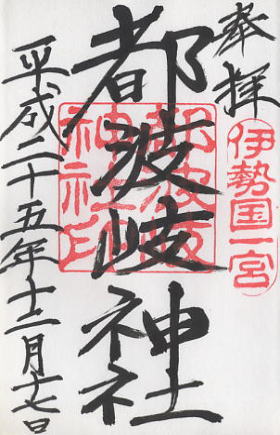 奉拝
伊勢国一宮
都波岐神社
都波岐
神社印
平成二十五年十二月十七日